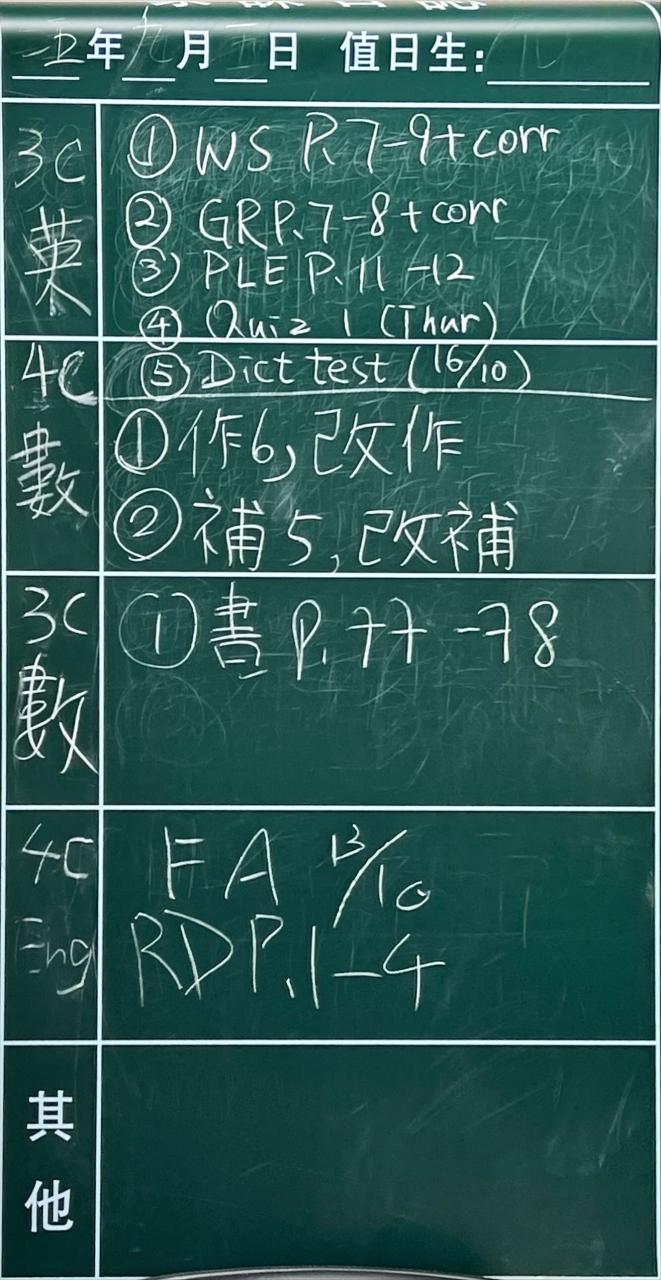 年 九月 日 值日生:
3C 英
① WS P.7-9+corr
② GR P.7-8+corr
③ PLE P.11-12
④ Quiz 1 (Thur)
⑤ Dict test (16/10)
4C 數
① 作6,改作
② 補5,改補
3C 數
① 書 P.77-78
4C Eng
FA 13/10
RD P.1-4
其他